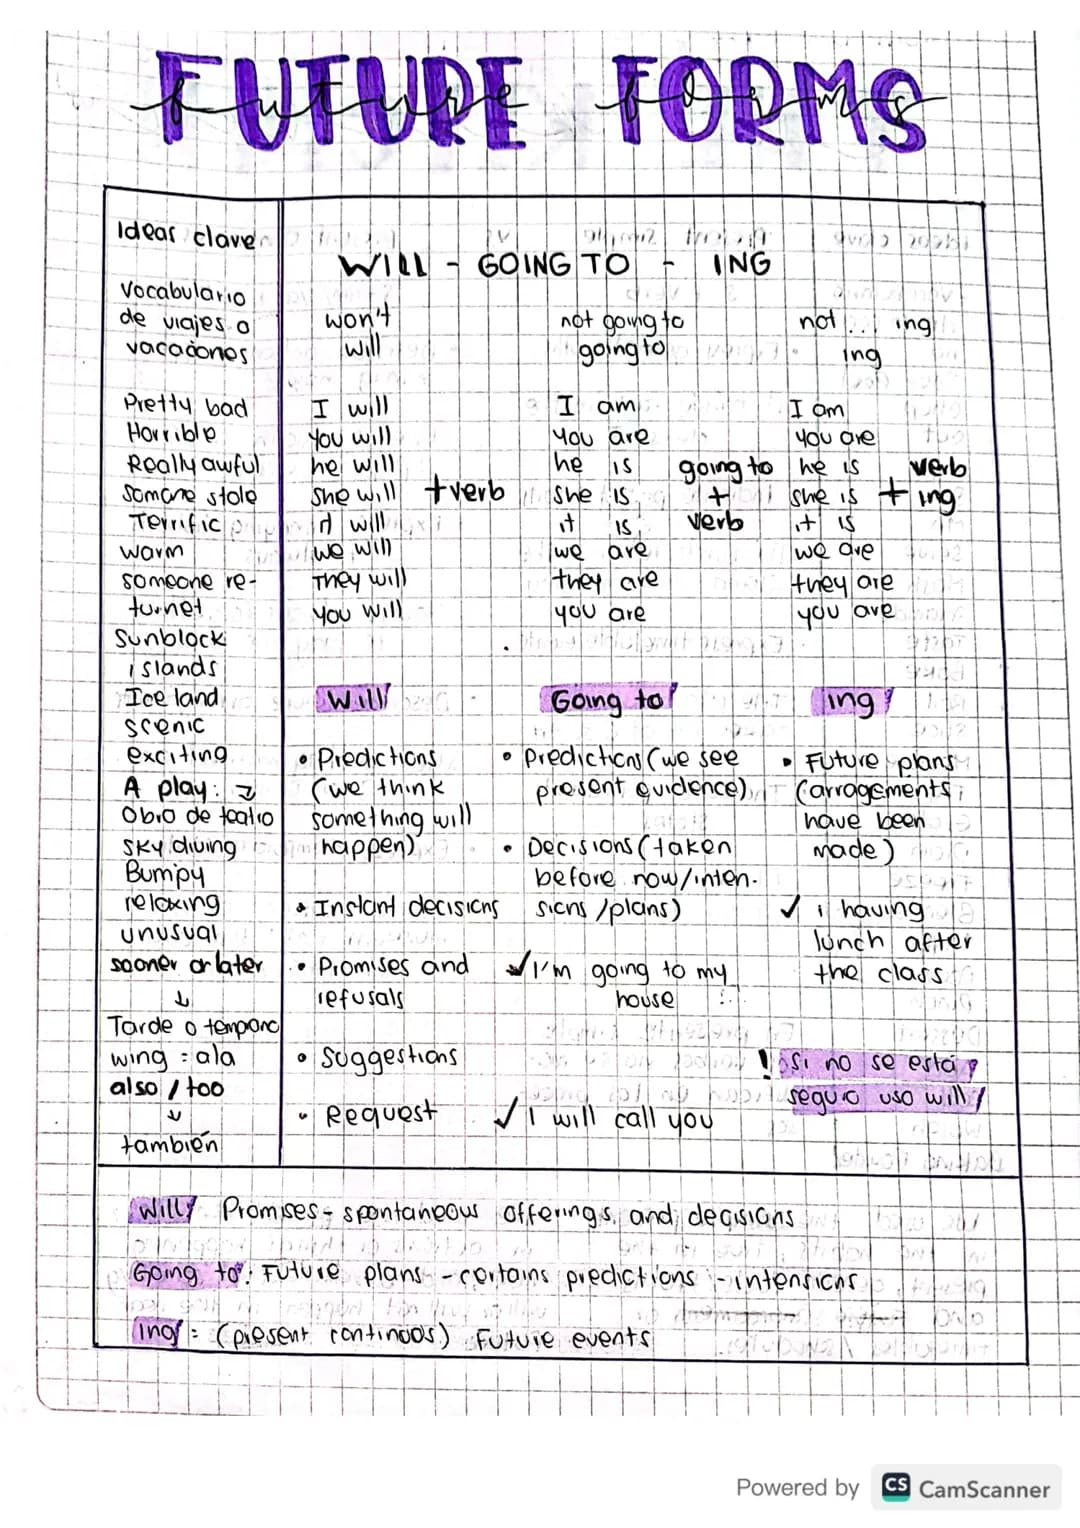 FUTURE FORMS
future forms
Ideas clave
Vocabulario
de viajes o
vacaciones
Pretty bad
Horrible
Really awful
Somone stole
Terrific
warm
someone re-
turnet
Sunblock
islands
Ice land
scenic
exciting
A play:
Obro de teatro
sky diving
Bumpy
relaxing
unusual
sooner or later
↓
Tarde o temprano
wing = ala
also / too
↓
también
WILL - GOING TO - ING
won't not going to not ... ing
will going to ing
I will I am I am
You will you are you are
he will he is going to he is verb
she will +verb she is + she is + ing
it will it is verb it is
we will we are we are
They will they are they are
you will you are you are
Will
• Predictions
(we think
something will
happen)
• Instant decisions
• Promises and
refusals
• Suggestions
• Request
✓ I will call you
Going to
• Predictions (we see
present evidence)
• Decisions (taken
before now/inten-
sions /plans)
✓ I'm going to my
house
ing
• Future plans
(arragements
have been
made)
✓ i having
lunch after
the class
! si no se está
seguro uso will
Will: Promises - spontaneous offerings and decisions
Going to: Future plans - certains predictions - intensions
ing: (present continuos) Future events
Powered by CS CamScanner